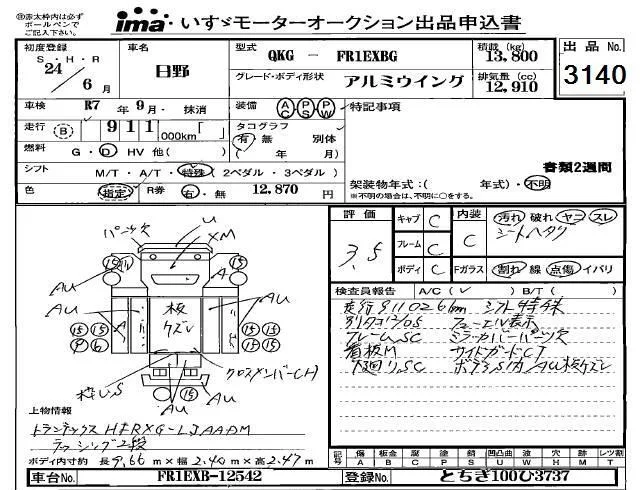 ㊟赤太枠内は必ず
ボールペンで
ご記入下さい。
ima いすゞモーターオークション出品申込書
初度登録
S・H・R
24年
6月
車名
日野
型式 QKG － FR1EXBG
グレード・ボディ形状 アルミウイング
積載 (kg)
13,800
排気量 (cc)
12,910
出品 No.
3140
車検 R7 年 9 月・ 抹消
装備 AC PS PW
特記事項
走行 B 911,000km「 」
タコグラフ
有 無 別体
( 年 月)
燃料 G・D HV 他( )
シフト M/T・A/T・特殊 (2ペダル・3ペダル)
書類2週間
色 指定 R券 有・無 12,870 円
架装物年式：( 年式)・不明
※不明の場合は、不明に○をする。
評価 3.5
キャブ C
フレーム C
ボディ C
内装 C
Fガラス C
汚れ 破れ ヤコ スレ
シートヘタリ
割れ 線 点傷 イバリ
検査員報告 A/C( ✓ ) B/T( )
走行911026km シフト特殊
フューエル表示
フレームSC ミラーカバーパーツ欠
看板M サイドガードCT
下廻りSC
パーツ欠
U
XM
15
15
A
AU
AU
AU
AU
板
ケズレ
A
15 15
9 6
15 15
15 15
枠しS
クロスメンバーCH
AU
上物情報
トランテックス
ラッシング2段
ボディ内寸約 長9.66m×幅2.40m×高2.47m
記号 傷 板金 腐 塗 錆 凹凸曲 波 穴 跡 レツ割
A B C P S U W H M T
車台No. FR1EXB-12542
登録No. とちぎ100ひ3737